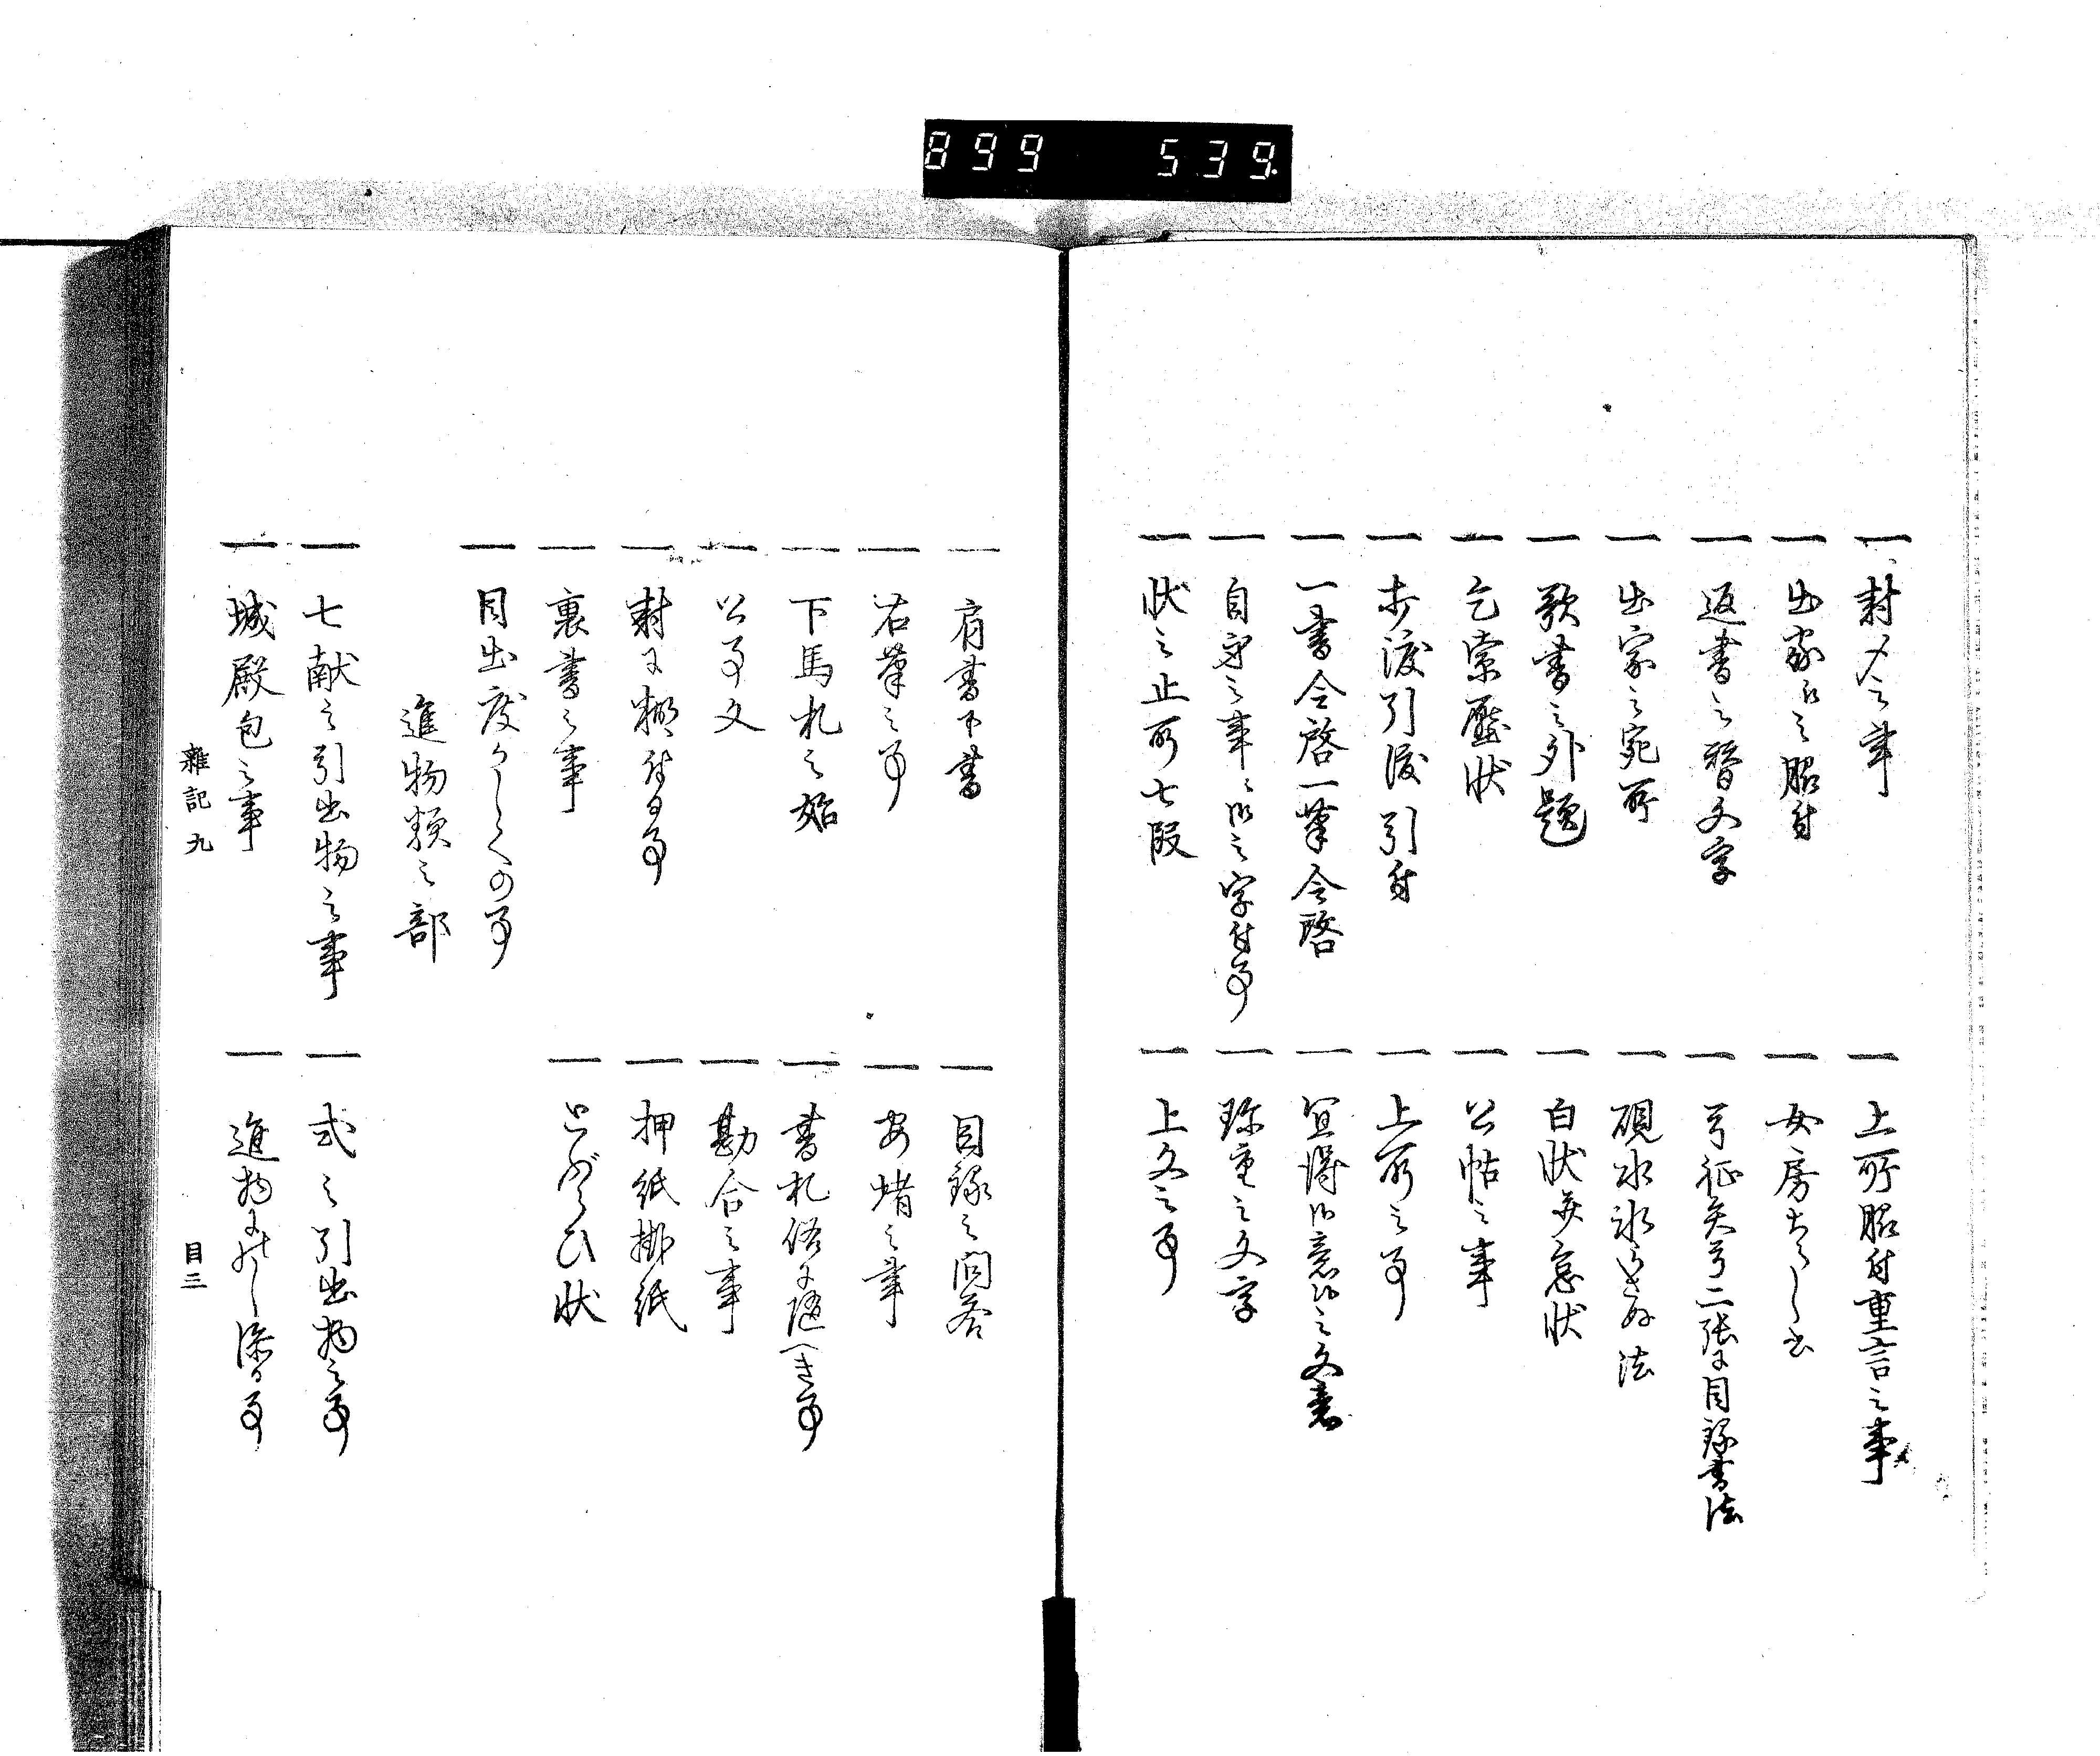 899 539
一 封〆之事
一 上所脇付重言之事
一 出家 之脇付
一 女房ちらし書
一 返書之替文字
一 弓征矢弓二張に目録書法
一 出家之宛所
一 硯水氷らさる法
一 歌書之外題
一 白状并怠状
一 乞索壓状
一 公帖之事
一 歩渡引渡引付
一 上所之事
一 一書令啓一筆令啓
一 宜得御意候之文意
一 自身之事ニ御之字付事
一 珍重之文字
一 状之止所七段
一 上文之事
一 肩書下書
一 目録之問答
一 右筆之事
一 安堵之事
一 下馬札之始
一 書札俗に随へき事
一 公事文
一 勘合之事
一 封に糊付る事
一 押紙掛紙
一 裏書之事
一 状
一 目出度かしくの事
進物類之部
一 七献之引出物之事
一 式之引出物之事
一 城殿包之事
一 進物にのし添る事
雜記九 目三